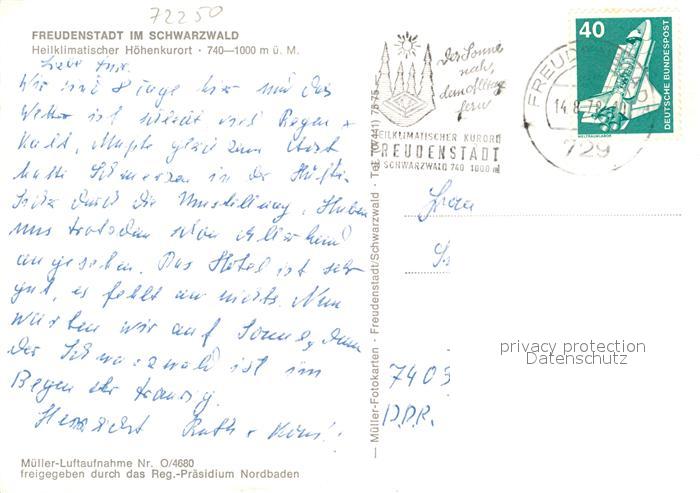 72250
FREUDENSTADT IM SCHWARZWALD
Heilklimatischer Höhenkurort · 740—1000 m ü. M.
Liebe
Wir sind 8 Tage hier und das
Wetter ist schlecht viel Regen +
kalt, Mußte gleich zum Arzt
hatte Schmerzen in der Hüfte.
durch die Umstellung. Haben
uns trotzdem schon allerhand
angesehen. Das Hotel ist sehr
gut, es fehlt an nichts. Nun
warten wir auf Sonne, denn
der Schwarzwald ist im
Regen sehr traurig.
Herzlichst Ruth +
Müller-Luftaufnahme Nr. O/4680
freigegeben durch das Reg.-Präsidium Nordbaden
— Müller-Fotokarten · Freudenstadt/Schwarzwald · Tel. (07441) 7875 —
Der Sonne
nah,
dem Alltag
fern
HEILKLIMATISCHER KURORT
FREUDENSTADT
SCHWARZWALD 740 1000 m
14.8.78
729
40
DEUTSCHE BUNDESPOST
WELTRAUMLABOR
Frau
7403
DDR.
privacy protection
Datenschutz